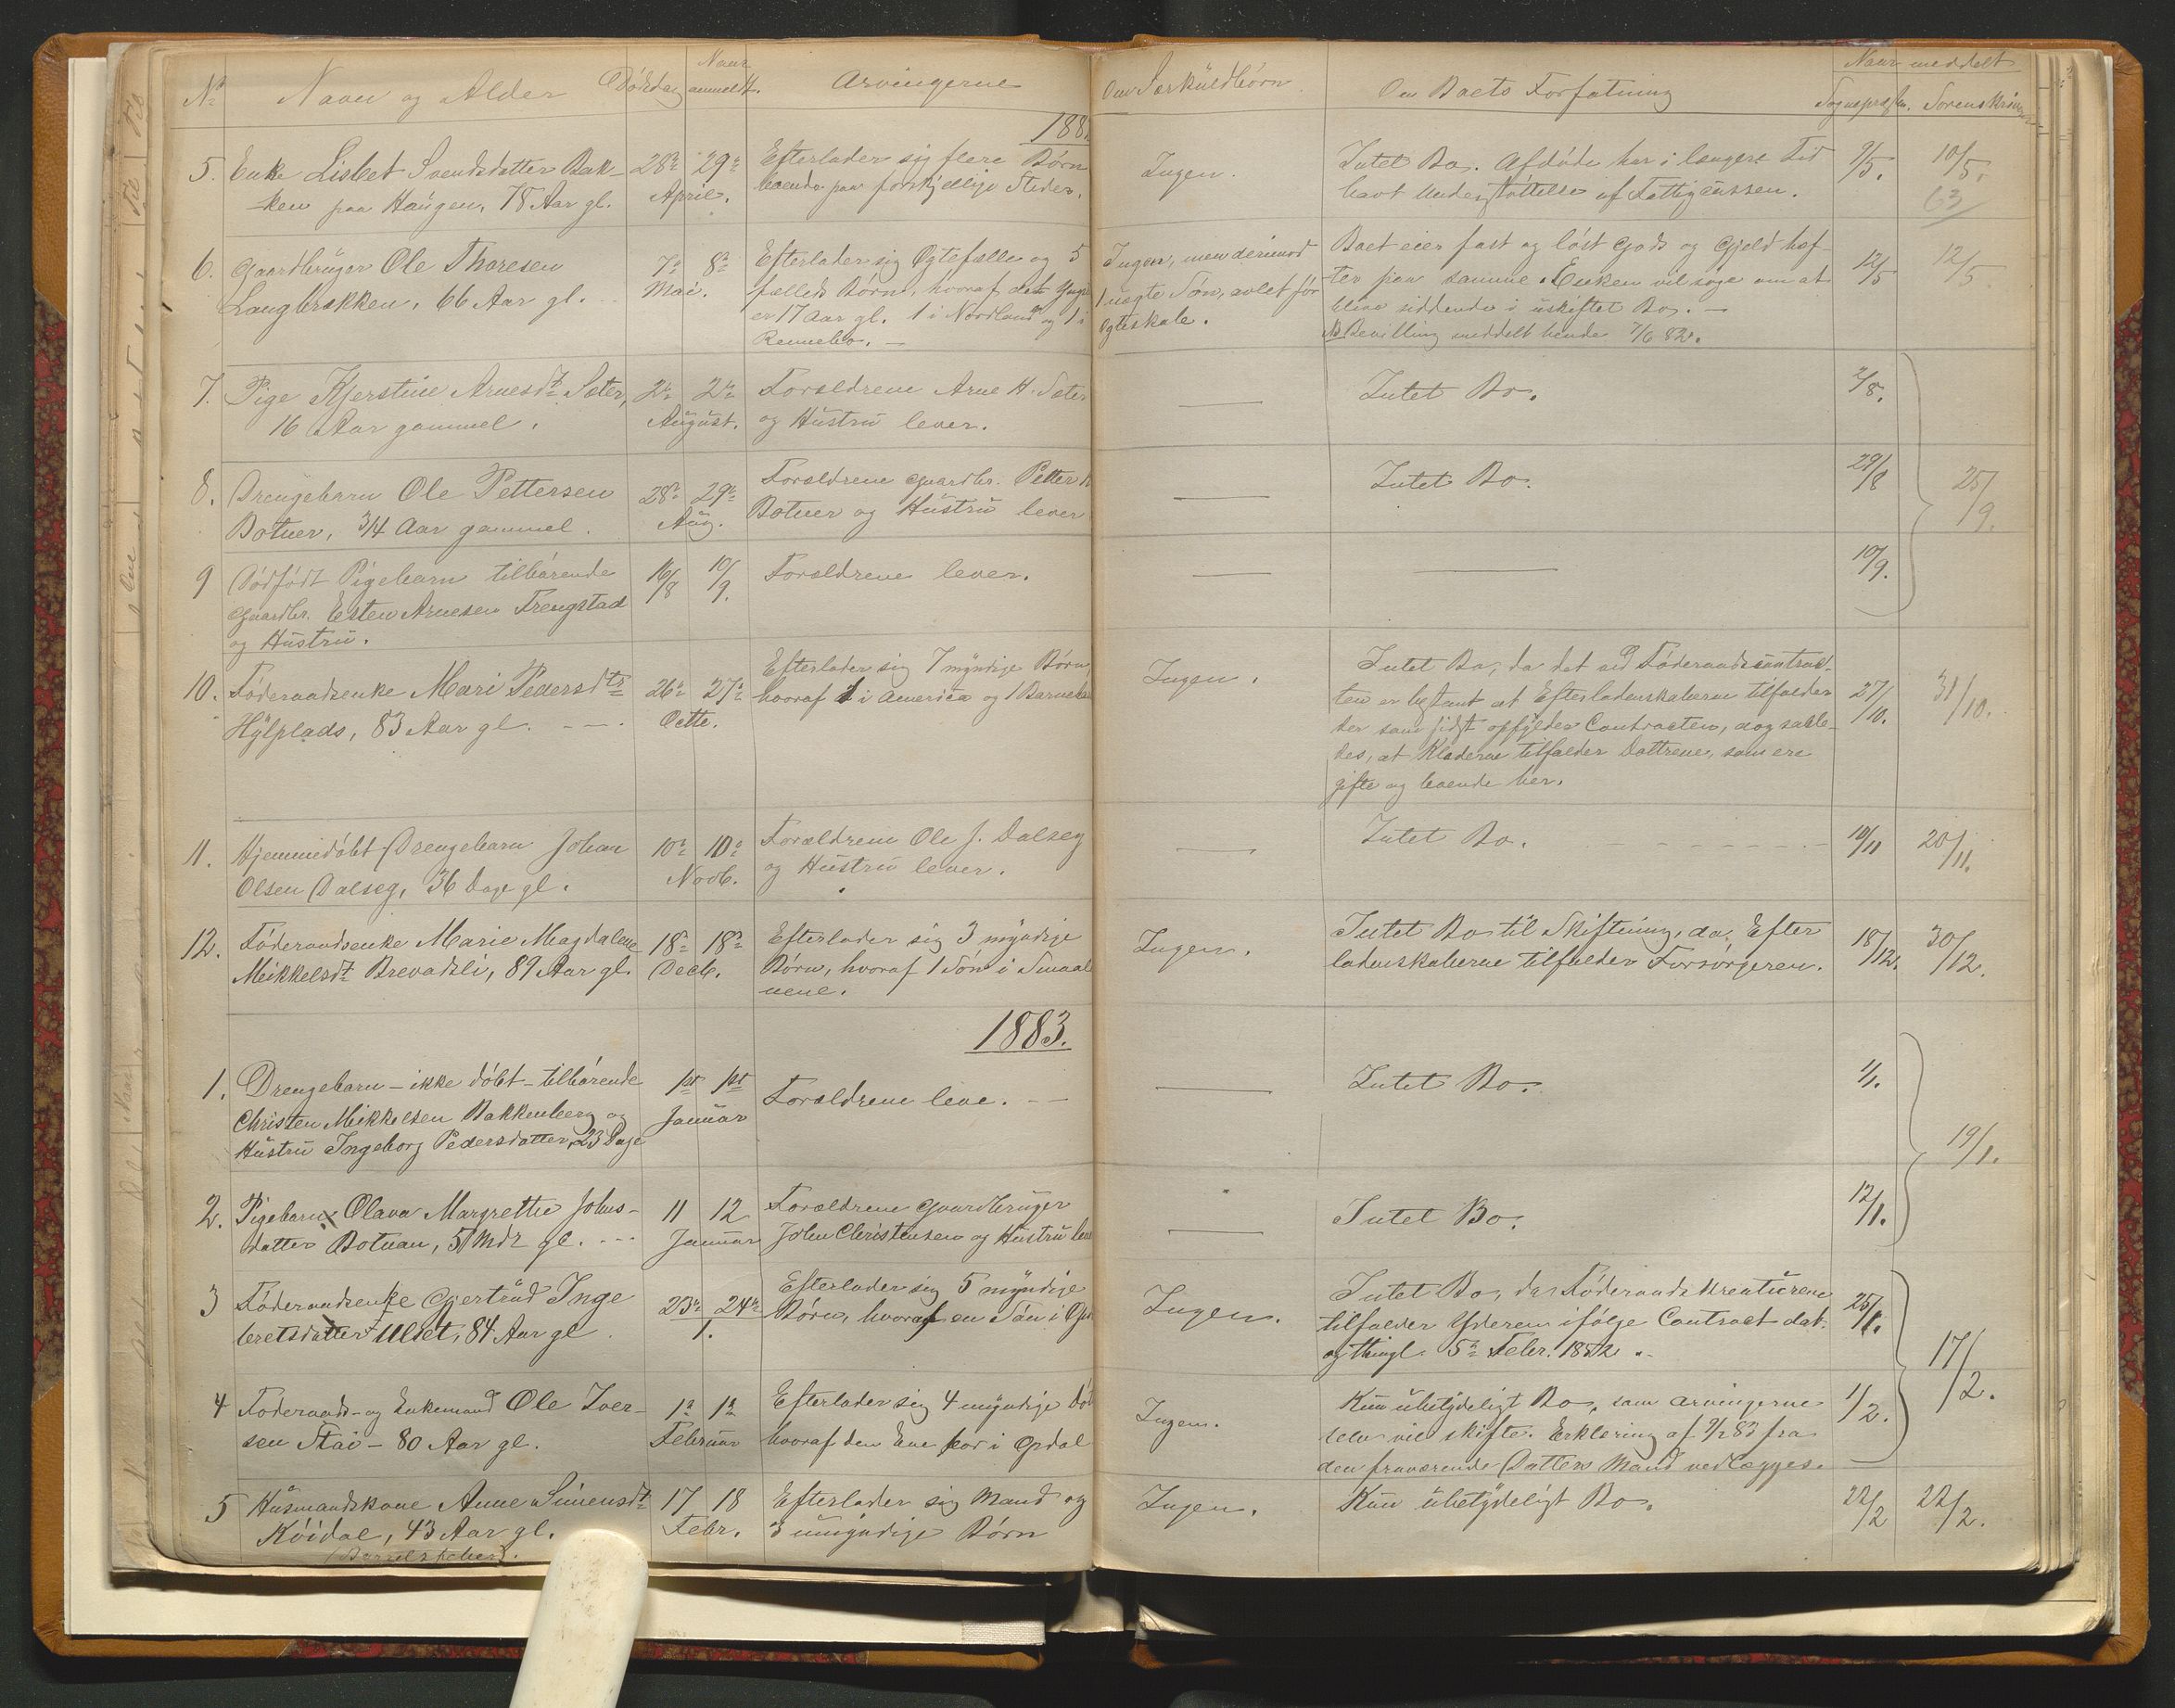 Nº Navn og Alder Dödsdag Naar anmeldt. Arvingerne Om Særkuldbörn Om Boets Forfatning Naar meddelt
Sognepræsten. Sorenskriver
188
5. Enke Lisbet Svendsdatter Bak-
ken paa Haugen, 78 Aar gl.
28de 29de
April.
Efterlader sig flere Börn
boende paa forskjellige Steder.
Ingen.
Intet Bo. Afdöde har i længere Tid
havt Understöttelse af Fattigcassen.
9/5. 10/5.
63
6. Gaardbruger Ole Thoresen
Langbrækken, 66 Aar gl.
7de 8de
Mai.
Efterlader sig Ægtefælle og 5
fælleds Börn, hvoraf det Yngste
er 17 Aar gl. 1 i Nordland og 1 i
Rennebo. —
Ingen, men derimod
1 uægte Sön, avlet för
Ægteskabe.
Boet eier fast og löst Gods og Gjeld hef-
ter paa samme. Enken vil söge om at
blive siddende i uskiftet Bo. —
NB Bevilling meddelt hende 7/6 82.
12/5 12/5.
7. Pige Kjerstine Arnesdt. Sæter,
16 Aar gammel.
2de 2de
August.
Forældrene Arne H. Sæter
og Hustru lever.
—
Intet Bo.
2/8.
8. Drengebarn Ole Pettersen
Botner, 3/4 Aar gammel.
28de 29de
Aug.
Forældrene Gaardbr. Petter
Botner og Hustru lever
—
Intet Bo.
29/8
25/9.
9 Dödfödt Pigebarn tilhörende
Gaardbr. Esten Arnesen Trengstad
og Hustru.
16/8 10/9.
Forældrene lever.
— —
10/9.
10. Föderaadsenke Mari Pedersdtr
Hylplads, 83 Aar gl. — — .
26de 27de
Octbr.
Efterlader sig 7 myndige Börn,
hvoraf 1 i America og 1 Barnebarn
Ingen.
Intet Bo, da det ved Föderaadscontrac-
ten er bestemt at Efterladenskaberne tilfalder
den som sidst opfylder Contracten, dog saale-
des, at Klæderne tilfalder Döttrene, som ere
gifte og boende her.
27/10. 31/10.
11. Hjemmedöbt Drengebarn Johan
Olsen Dalseg, 36 Dage gl.
10de 10de
Novb.
Forældrene Ole J. Dalseg
og Hustru lever.
—
Intet Bo. - - - - - - -
10/11 20/11.
12. Föderaadsenke Marie Magdalene
Mikkelsdt. Brevadsli, 89 Aar gl.
18de 18de
Decb.
Efterlader sig 3 myndige
Börn, hvoraf 1 Sön i Smaale-
nene.
Ingen.
Intet Bo til Skiftning, da Efter
ladenskaberne tilfalder Forsörgeren.
18/12. 30/12.
1883.
1. Drengebarn – ikke döbt – tilhörende
Christen Mikkelsen Bakkenberg og
Hustru Ingeborg Pedersdatter, 23 Dage
1st 1st
Januar
Forældrene leve. —
—
Intet Bo.
1/1.
19/1.
2. Pigebarn Olava Margrethe Johns-
datter Botnan, 5 Mdr gl. - - -
11 12
Januar
Forældrene Gaardbruger
John Christensen og Hustru leve
—
Intet Bo.
12/1.
3 Föderaadsenke Gjertrud Inge
bretsdatter Ulset, 84 Aar gl.
23de 24de
1.
Efterlader sig 5 myndige
Börn, hvoraf en Sön i Opd
Ingen.
Intet Bo, da Föderaads Kreaturene
tilfalder Yderen ifölge Contract dat.
og thingl. 5te Febr. 1852.
25/1.
17/2.
4 Föderaads- og Enkemand Ole Iver-
sen Stai – 80 Aar gl.
1ste 1ste
Februar
Efterlader sig 4 myndige Döt
hvoraf den Ene bor i Opdal
Ingen.
Kun ubetydeligt Bo, som Arvingerne
selv vil skifte. Erklæring af 9/2 83 fra
den fraværende Datters Mand vedlægges.
1/2.
5 Husmandskone Anne Simensdt.
Röidal, 43 Aar gl.
17 18
Febr.
Efterlader sig Mand og
3 umyndige Börn
Ingen.
Kun ubetydeligt Bo.
22/2 22/2.